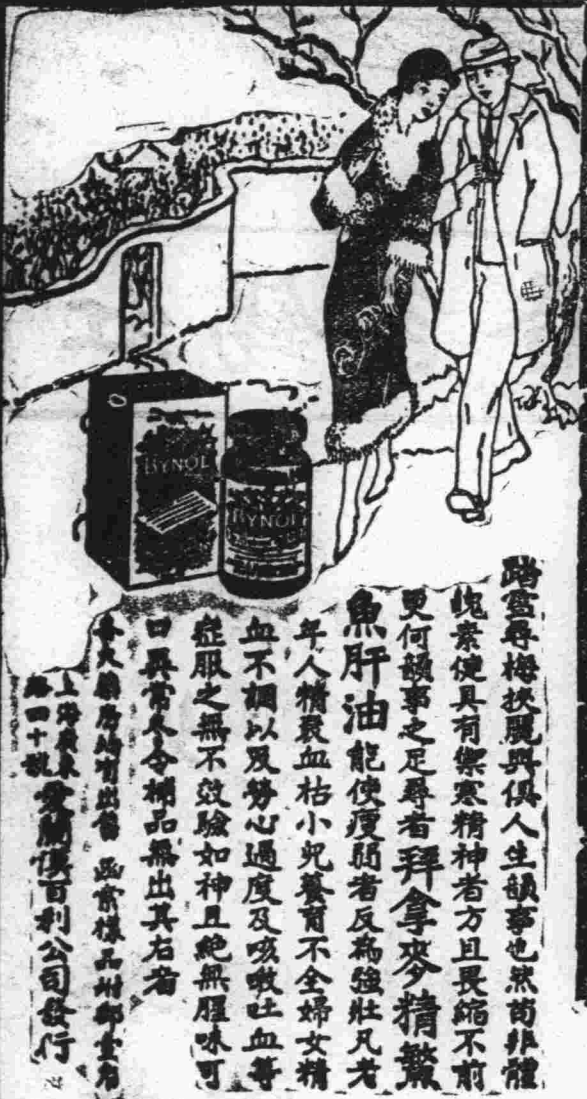 BYNOL
BYNOL
踏雪尋梅挾麗與俱人生韻事也然苟非體
魄素健具有禦寒精神者方且畏縮不前
更何韻事之足尋者拜拿麥精鰵
魚肝油能使瘦弱者反為強壯凡老
年人精衰血枯小兒養育不全婦女精
血不調以及勞心過度及咳嗽吐血等
症服之無不效驗如神且絕無腥味可
口異常冬令補品無出其右者
各大藥房均有出售 函索樣品附郵壹角
上海廣東
路四十號
愛蘭漢百利公司發行